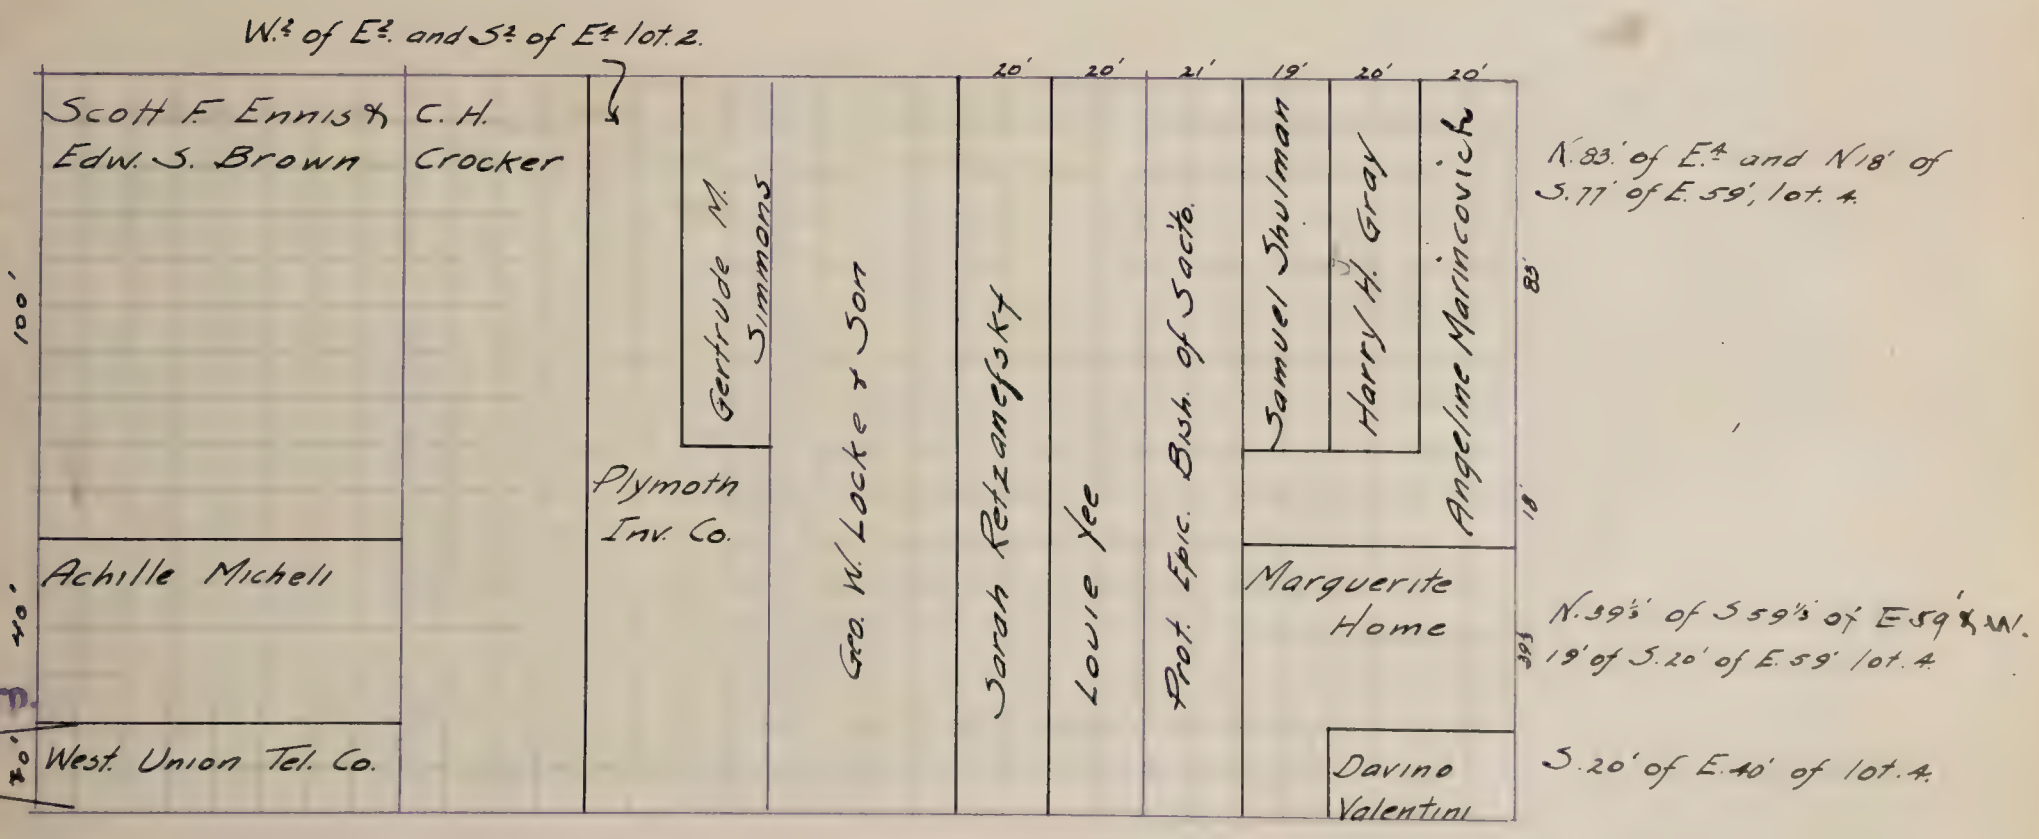 W.½ of E½. and S½ of E¼ lot. 2.
20' 20' 21' 19' 20' 20'
Scott F. Ennis &
Edw. S. Brown
C. H.
Crocker
Gertrude M.
Simmons
Geo. W. Locke & Son
Sarah Retzanefsky
Louie Yee
Prot. Epic. Bish. of Sacto.
Samuel Shulman
Harry H. Gray
Angeline Marincovich
N. 83.' of E.¼ and N 18' of
S. 77' of E. 59', lot. 4.
100'
83'
Plymoth
Inv. Co.
18'
Achille Micheli
40'
Marguerite
Home
N. 39⅓' of S 59⅓ of E 59' & W.
19' of S. 20' of E. 59' lot. 4.
39⅓
West. Union Tel. Co.
20'
Davino
Valentini
S. 20' of E. 40' of lot. 4.